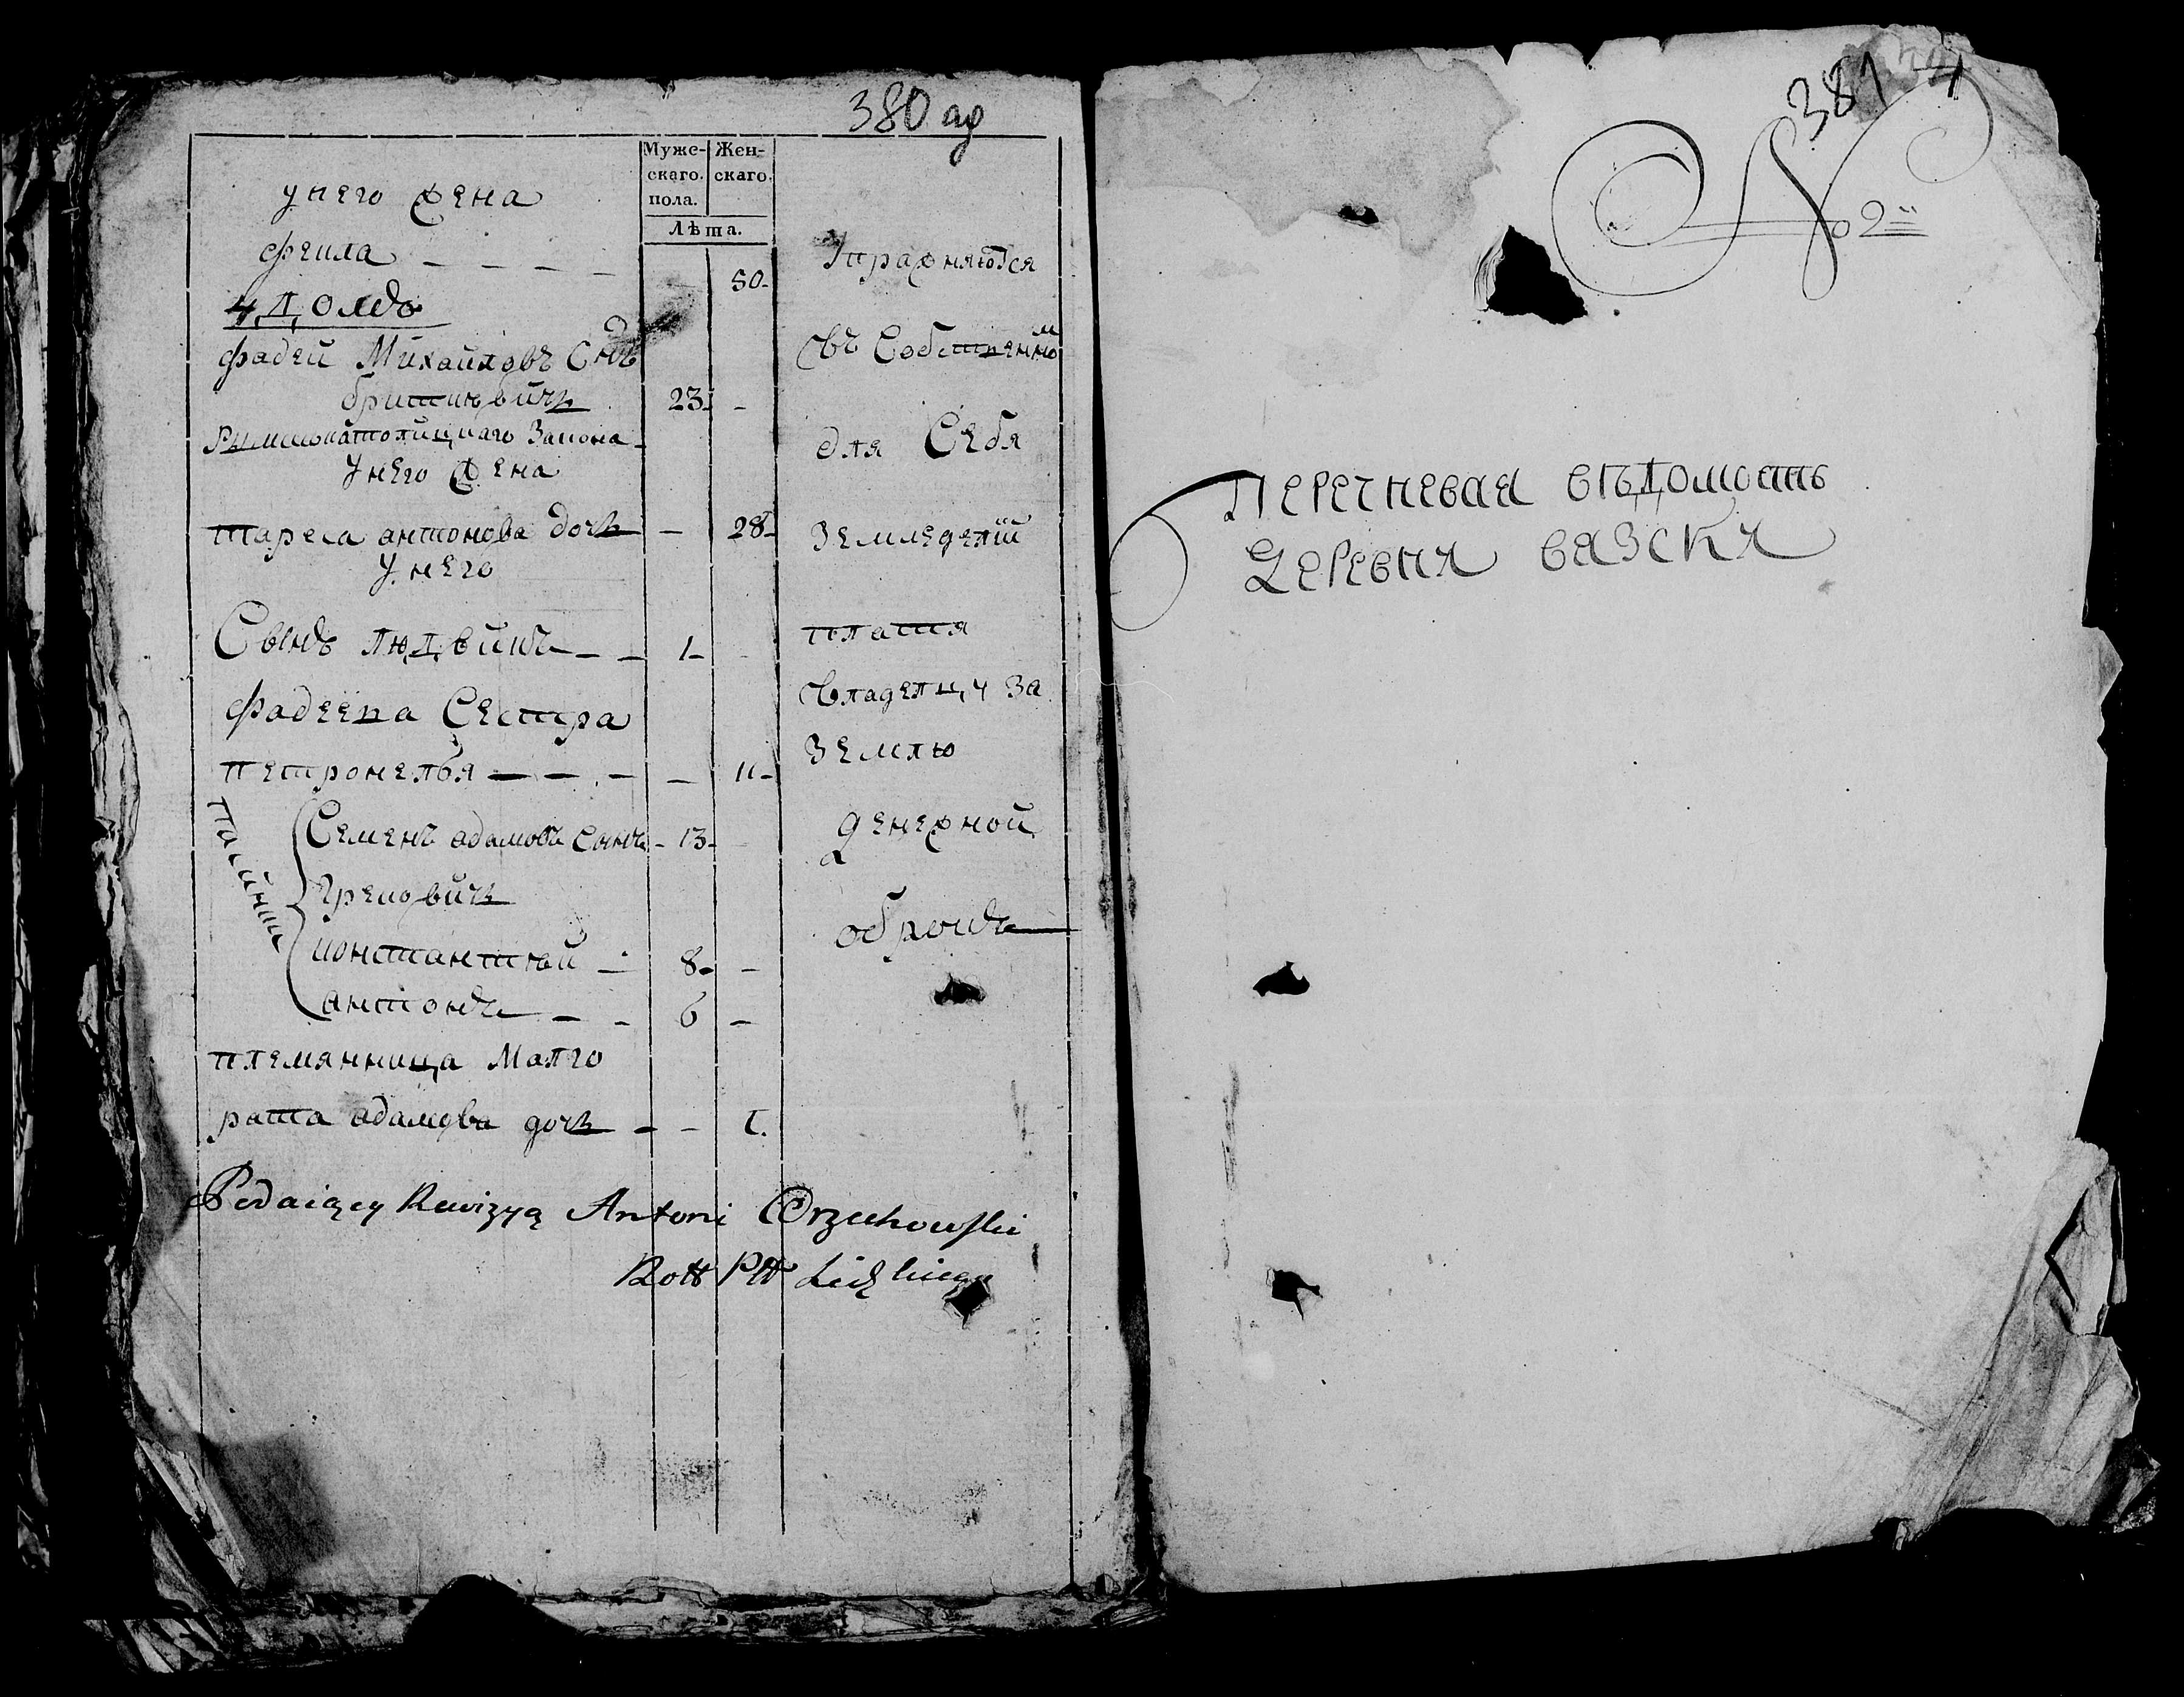 380 ад
Муже-
скаго.
пола.
Жен-
скаго.
Лѣта.
у него жена
фекла — — — — 50-
4 Домъ
фадей Михайловъ Снъ
23. -
Римлокатолицкаго Закона
У него жена
тареса антонова дочь — 28-
У него
Сынъ людвикъ — — 1-
фадеева Сестра
петронелья — — — — 11-
пасынки
Семенъ адамовъ Сынъ - 13-
Грековичъ
константый — 8- —
антонъ — — 6 —
племянница Малго
рата адамова дочь — — 1.
Упражняются
въ Собственномъ
для Себя
земледелій
платя
владелцу за
землю
денежной
оброкъ
Podaiący Rewizyą Antoni Orzechowski
Rott Ptt Lidzkiego
381
No 2
Перечневая вѣдомость
Деревня вязскя